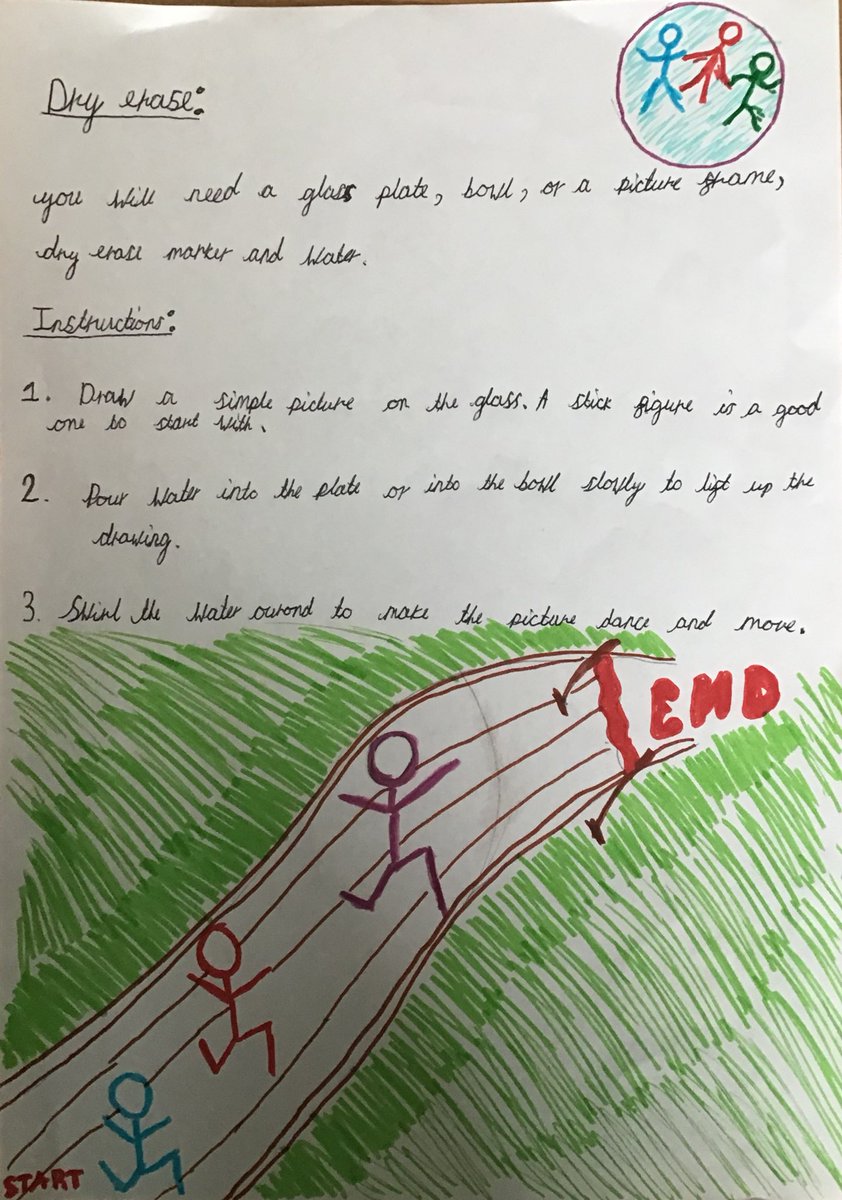 Dry erase:
you will need a glass plate, bowl, or a picture frame,
dry erase marker and water.
Instructions:
1. Draw a simple picture on the glass. A stick figure is a good
one to start with.
2. Pour water into the plate or into the bowl slowly to lift up the
drawing.
3. Swirl the water ourond to make the picture dance and move.
END
START